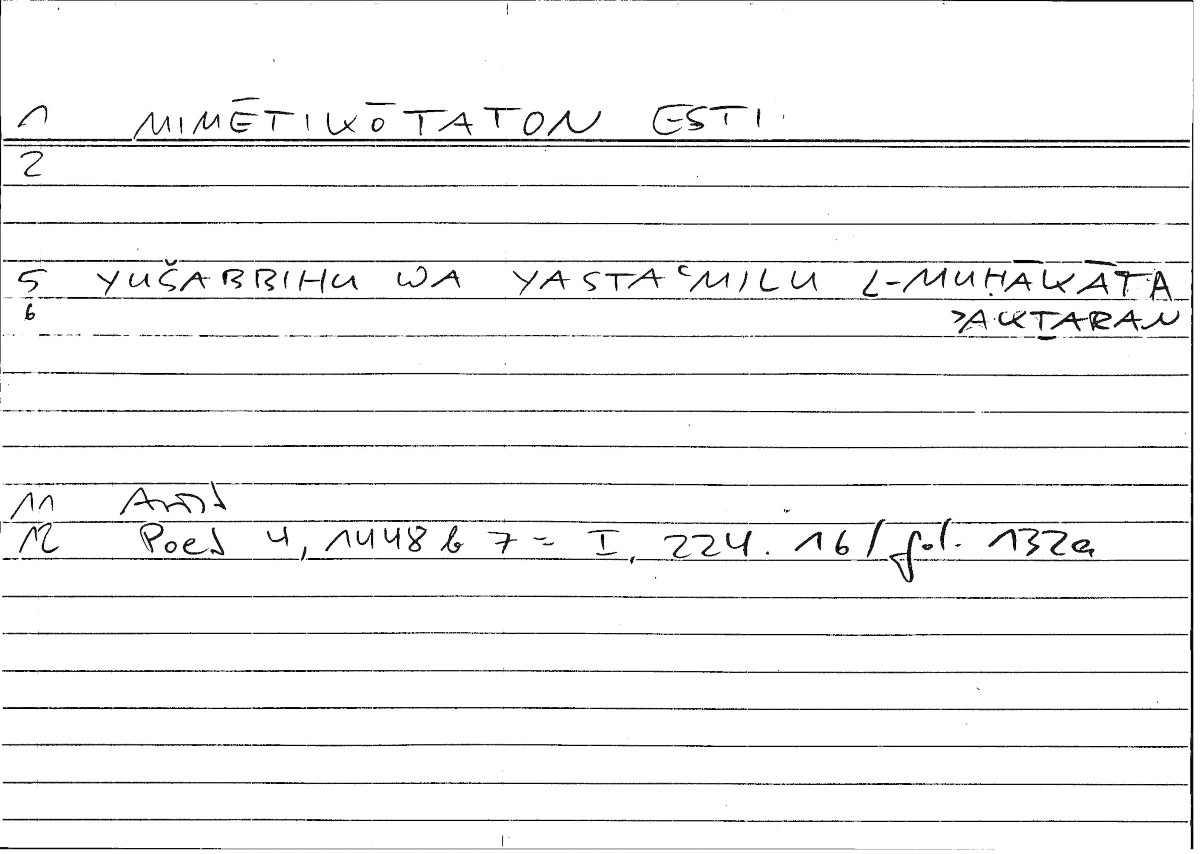 1 MIMĒTIKŌTATON ESTI.
2
5 YUŠABBIHU WA YASTAʿMILU L-MUḤĀKĀTA
6 ʾAKṮARAN
11 Arist
12 Poet 4, 1448 b 7 = I, 224. 16 / fol. 132a